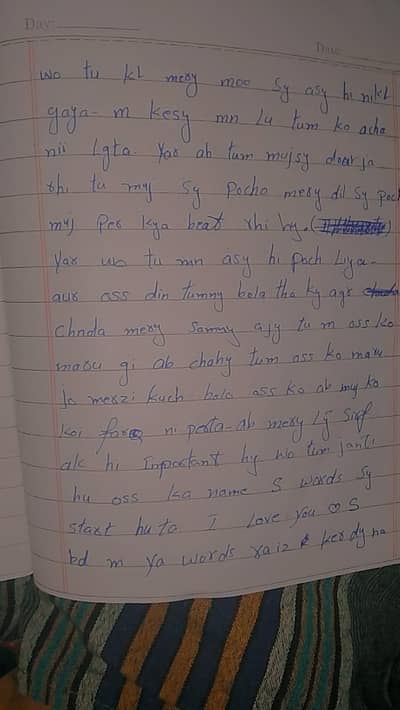 Day:
Date:
wo tu kl mery moo sy asy hi nikl
gaya- m kesy mn lu tum ko acha
nii lgta. Yar ab tum mujsy door ja
rhi tu my sy pocho mery dil sy poch
muj per kya beat rhi hy. (
Yar wo tu mn asy hi poch liya-
aur oss din tumny bola tha ky agr
Chnda mery samny ajy tu m oss ko
maru gi ab chahy tum oss ko maru
ja merzi kuch bolo oss ko ab my ko
koi farq ni perta-ab mery ly sirf
aik hi Important hy wo tum janti
hu oss ka name S words sy
start hu ta I love you ♡ S
bd m ya words raiz ker dy na